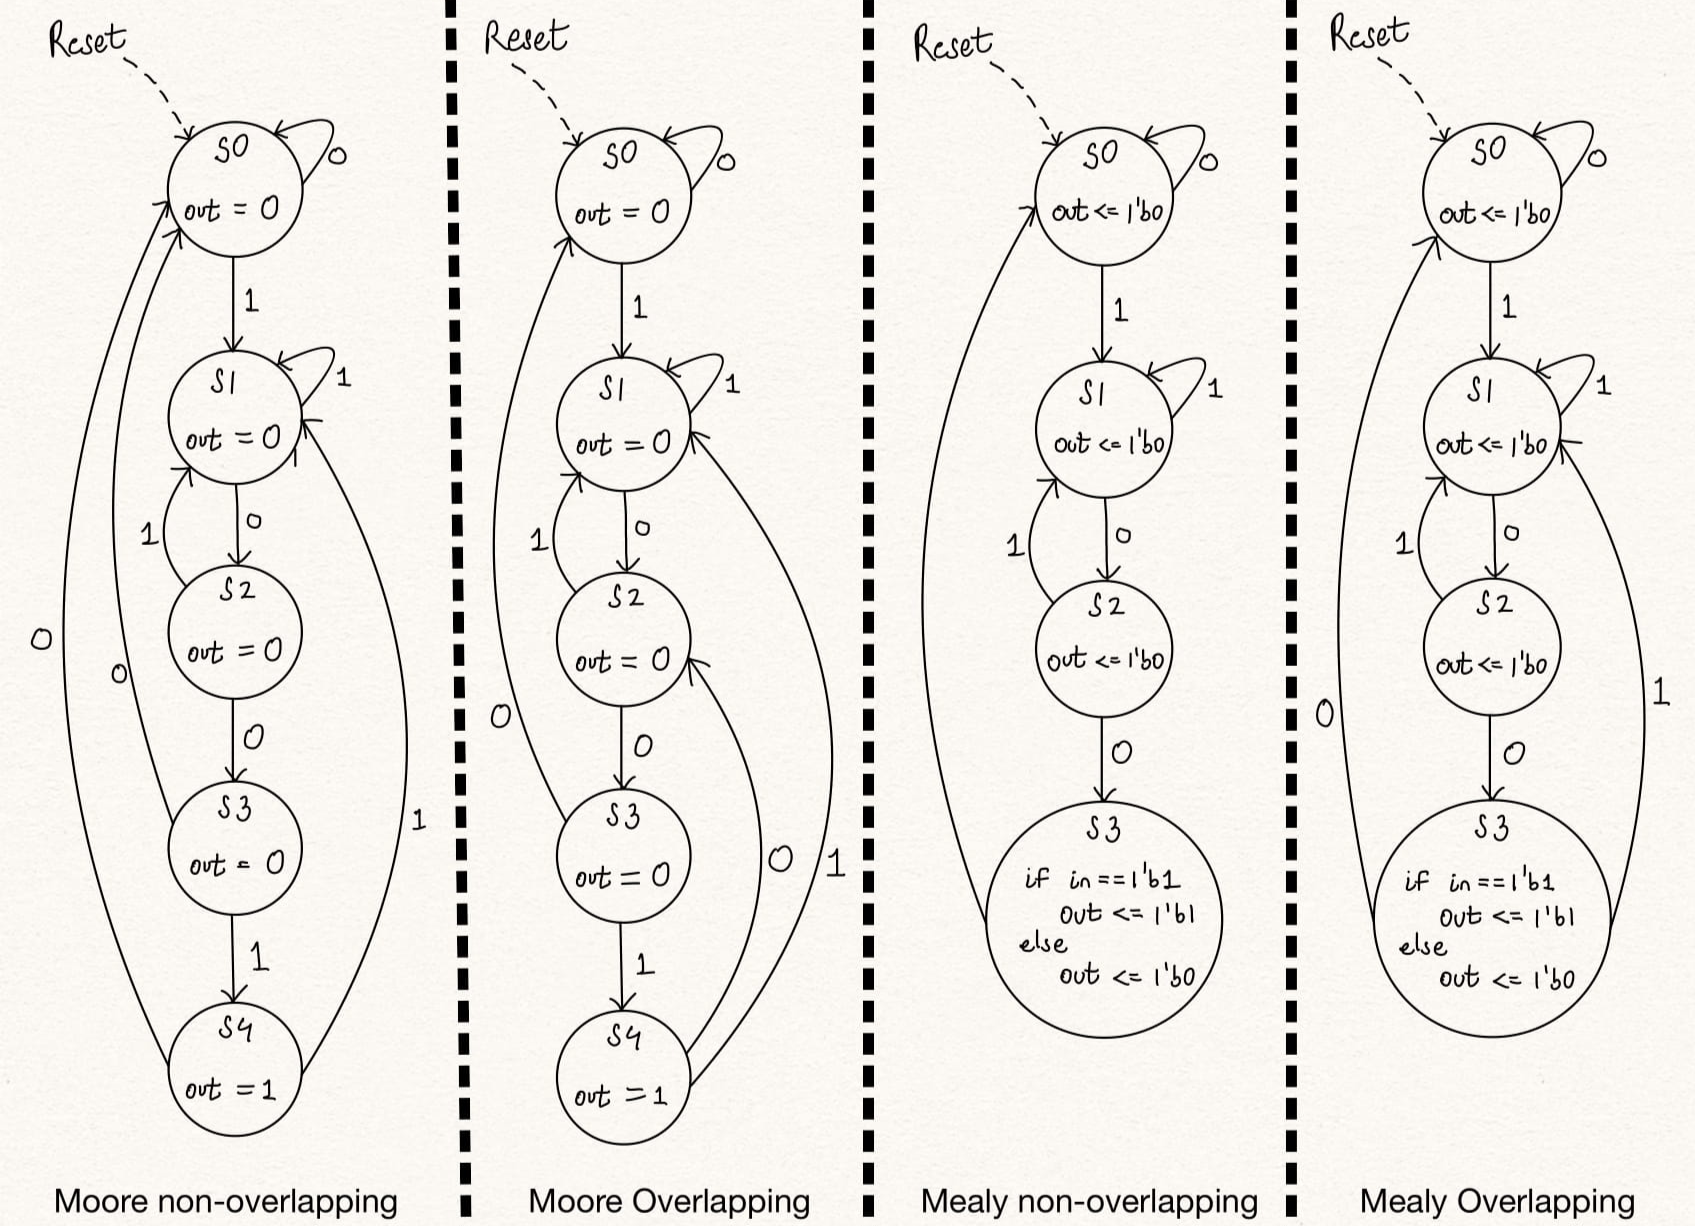 Reset
S0
out = 0
0
1
S1
out = 0
1
1
0
S2
out = 0
0
0
0
S3
out = 0
1
1
S4
out = 1
Moore non-overlapping
Reset
S0
out = 0
0
1
S1
out = 0
1
1
0
S2
out = 0
0
0
S3
out = 0
0
1
1
S4
out = 1
Moore Overlapping
Reset
S0
out <= 1'b0
0
1
S1
out <= 1'b0
1
1
0
S2
out <= 1'b0
0
S3
if in == 1'b1
out <= 1'b1
else
out <= 1'b0
Mealy non-overlapping
Reset
S0
out <= 1'b0
0
1
S1
out <= 1'b0
1
1
0
S2
out <= 1'b0
1
0
0
S3
if in == 1'b1
out <= 1'b1
else
out <= 1'b0
Mealy Overlapping